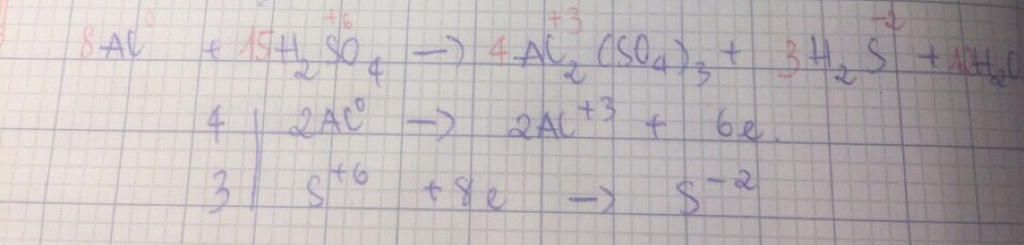 8Al⁰ + 15H₂S⁺⁶O₄ → 4Al₂⁺³(SO₄)₃ + 3H₂S⁻² + 12H₂O
4 | 2Al⁰ → 2Al⁺³ + 6e
3 | S⁺⁶ + 8e → S⁻²